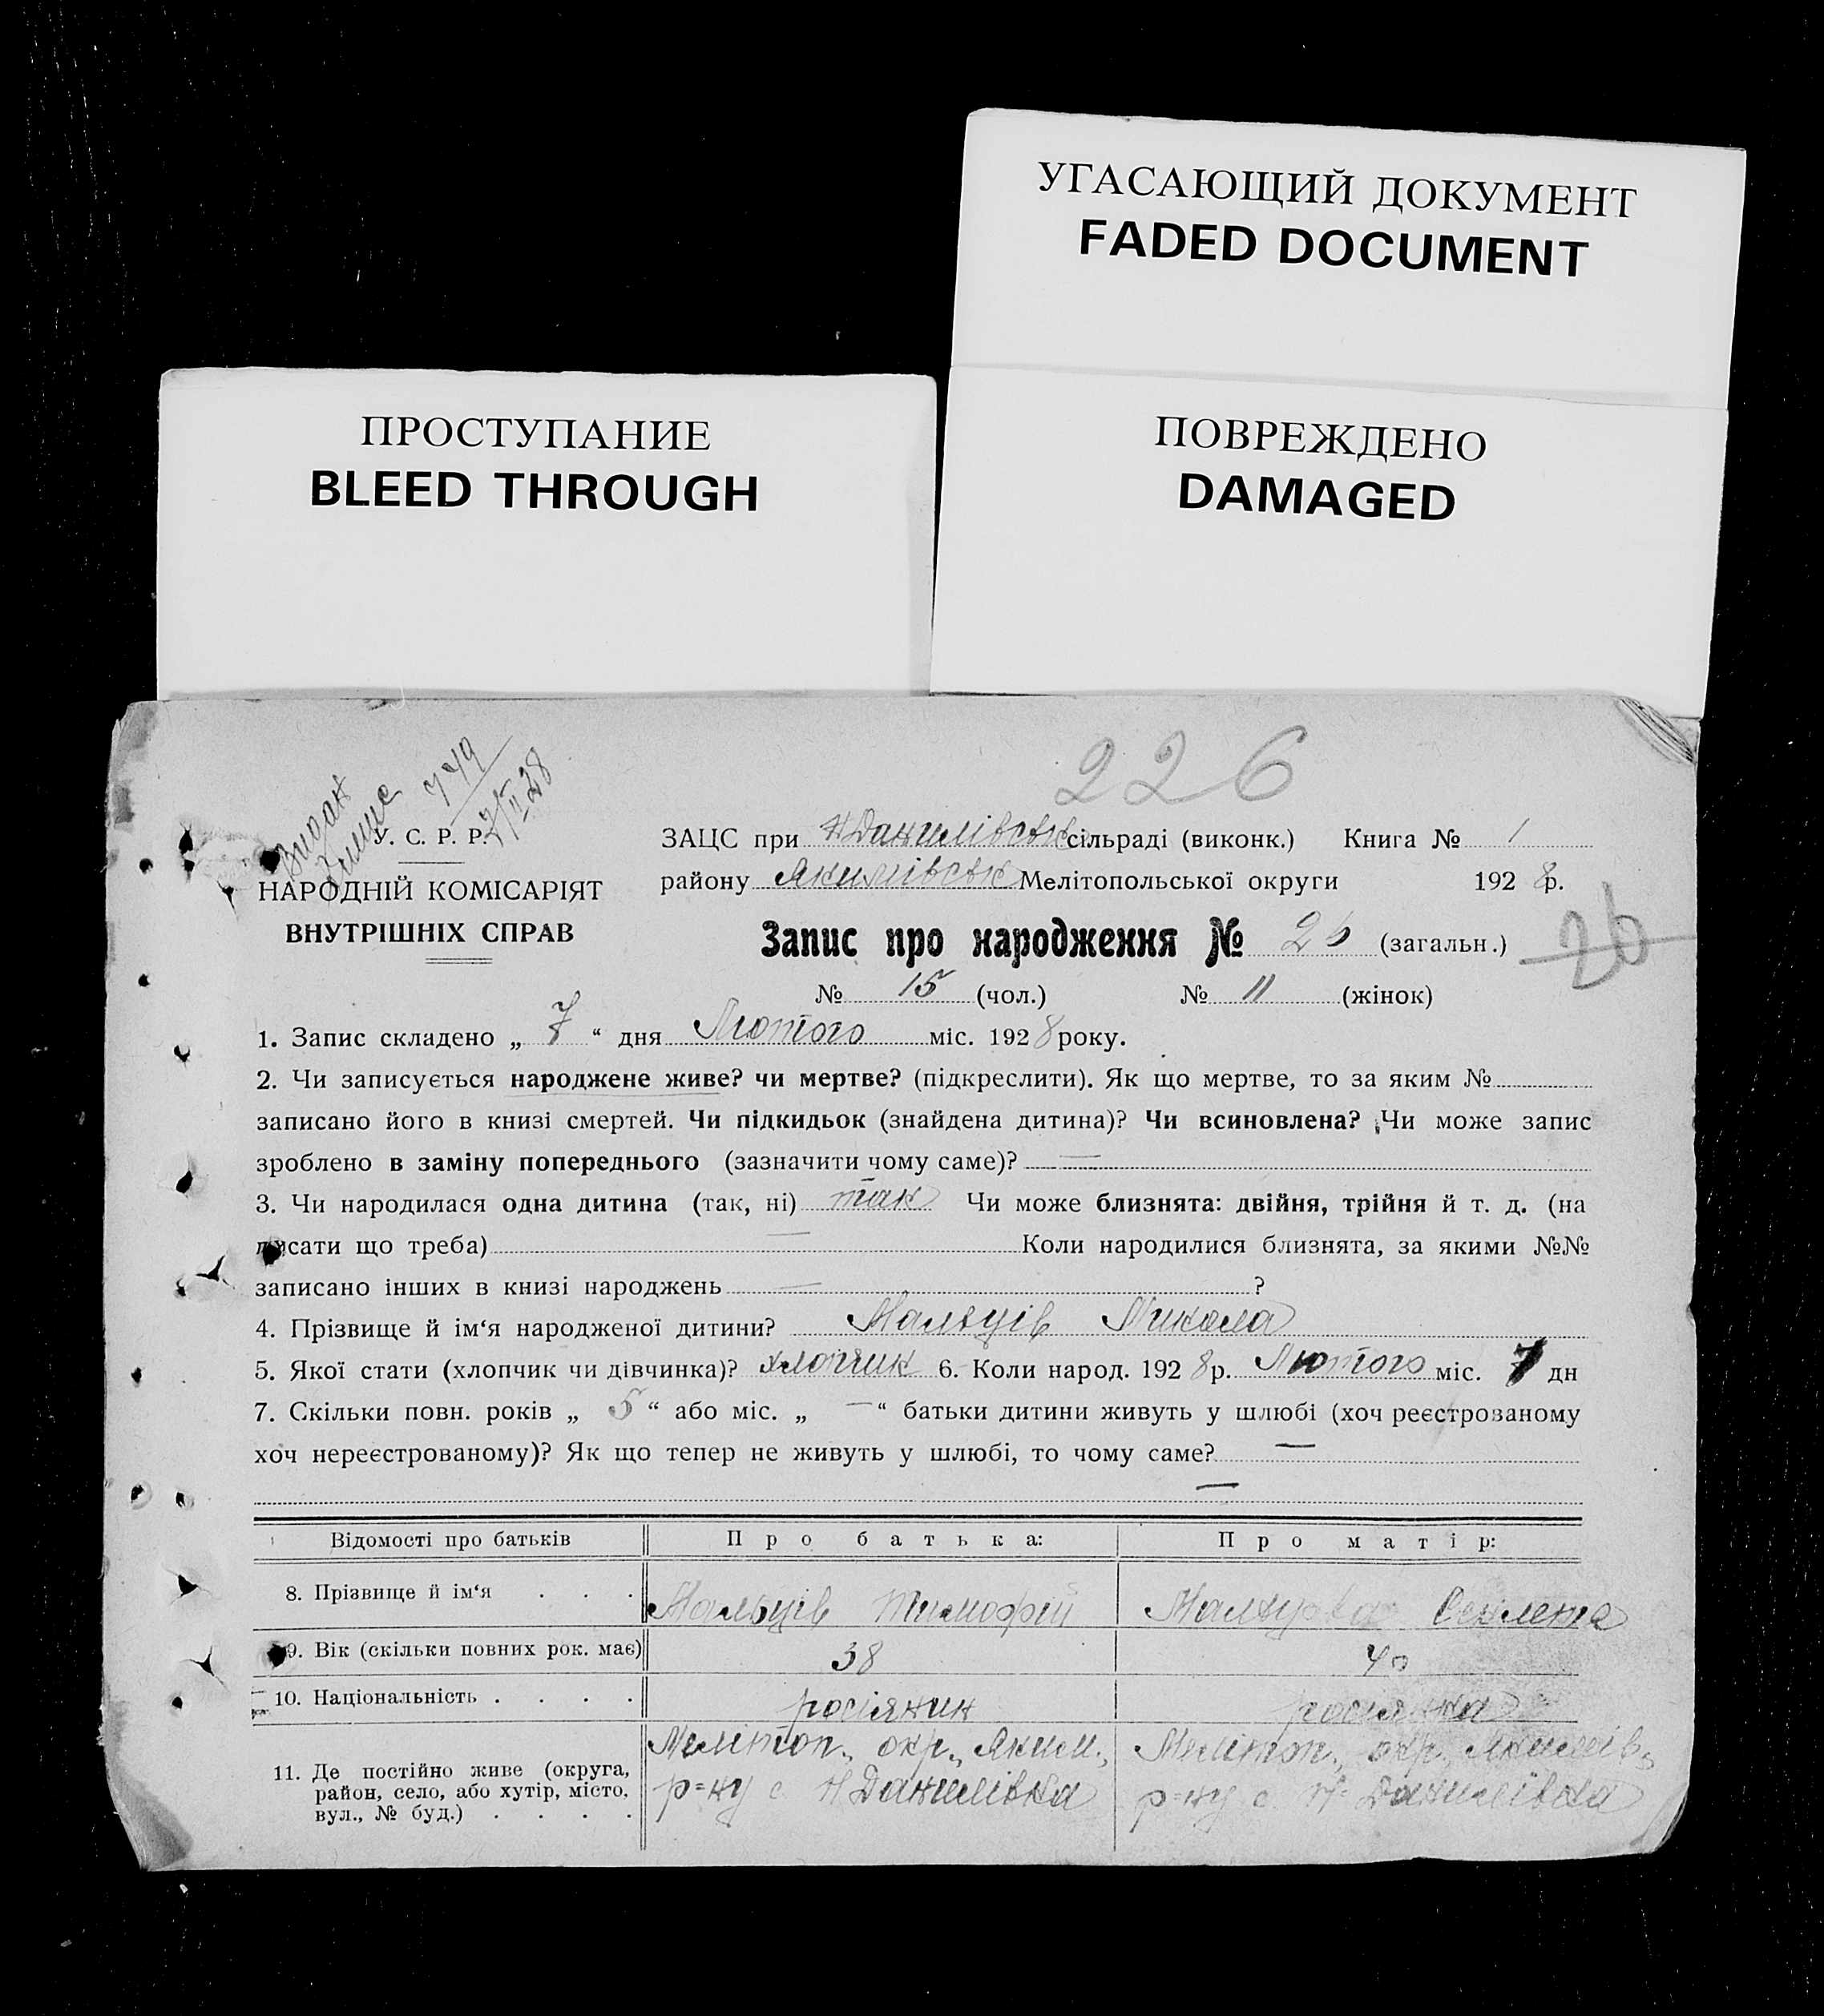 УГАСАЮЩИЙ ДОКУМЕНТ
FADED DOCUMENT
ПРОСТУПАНИЕ
BLEED THROUGH
ПОВРЕЖДЕНО
DAMAGED
226
Видан
749
7/II 28
У. С. Р. Р.
НАРОДНІЙ КОМІСАРІЯТ
ВНУТРІШНІХ СПРАВ
ЗАЦС при Н Данилівськ сільраді (виконк.) Книга № 1
району Якимівськ Мелітопольської округи 1928 р.
Запис про народження № 26 (загальн.)
26
№ 15 (чол.) № 11 (жінок)
1. Запис складено „ 7 “ дня Лютого міс. 1928 року.
2. Чи записується народжене живе? чи мертве? (підкреслити). Як що мертве, то за яким №
записано його в книзі смертей. Чи підкидьок (знайдена дитина)? Чи всиновлена? Чи може запис
зроблено в заміну попереднього (зазначити чому саме)? —
3. Чи народилася одна дитина (так, ні) так Чи може близнята: двійня, трійня й т. д. (на
писати що треба) — Коли народилися близнята, за якими №№
записано інших в книзі народжень — ?
4. Прізвище й ім‘я народженої дитини? Мальців Микола
5. Якої стати (хлопчик чи дівчинка)? хлопчик 6. Коли народ. 1928 р. Лютого міс. 7 дн
7. Скільки повн. років „ 5 “ або міс. „ — “ батьки дитини живуть у шлюбі (хоч реєстрованому
хоч нереєстрованому)? Як що тепер не живуть у шлюбі, то чому саме? —
—
Відомості про батьків Про батька: Про матір:
8. Прізвище й ім‘я . . . Мальців Тимофій Мальцева
9. Вік (скільки повних рок. має) 38 40
10. Національність . . . . росіянин росіянка
11. Де постійно живе (округа, район, село, або хутір, місто, вул., № буд.) . . . .
Мелітоп., окр., Яким., Мелітоп., окр., Якимів.,
р=ну с Н Данилівка р=ну с. Н= Данилівка